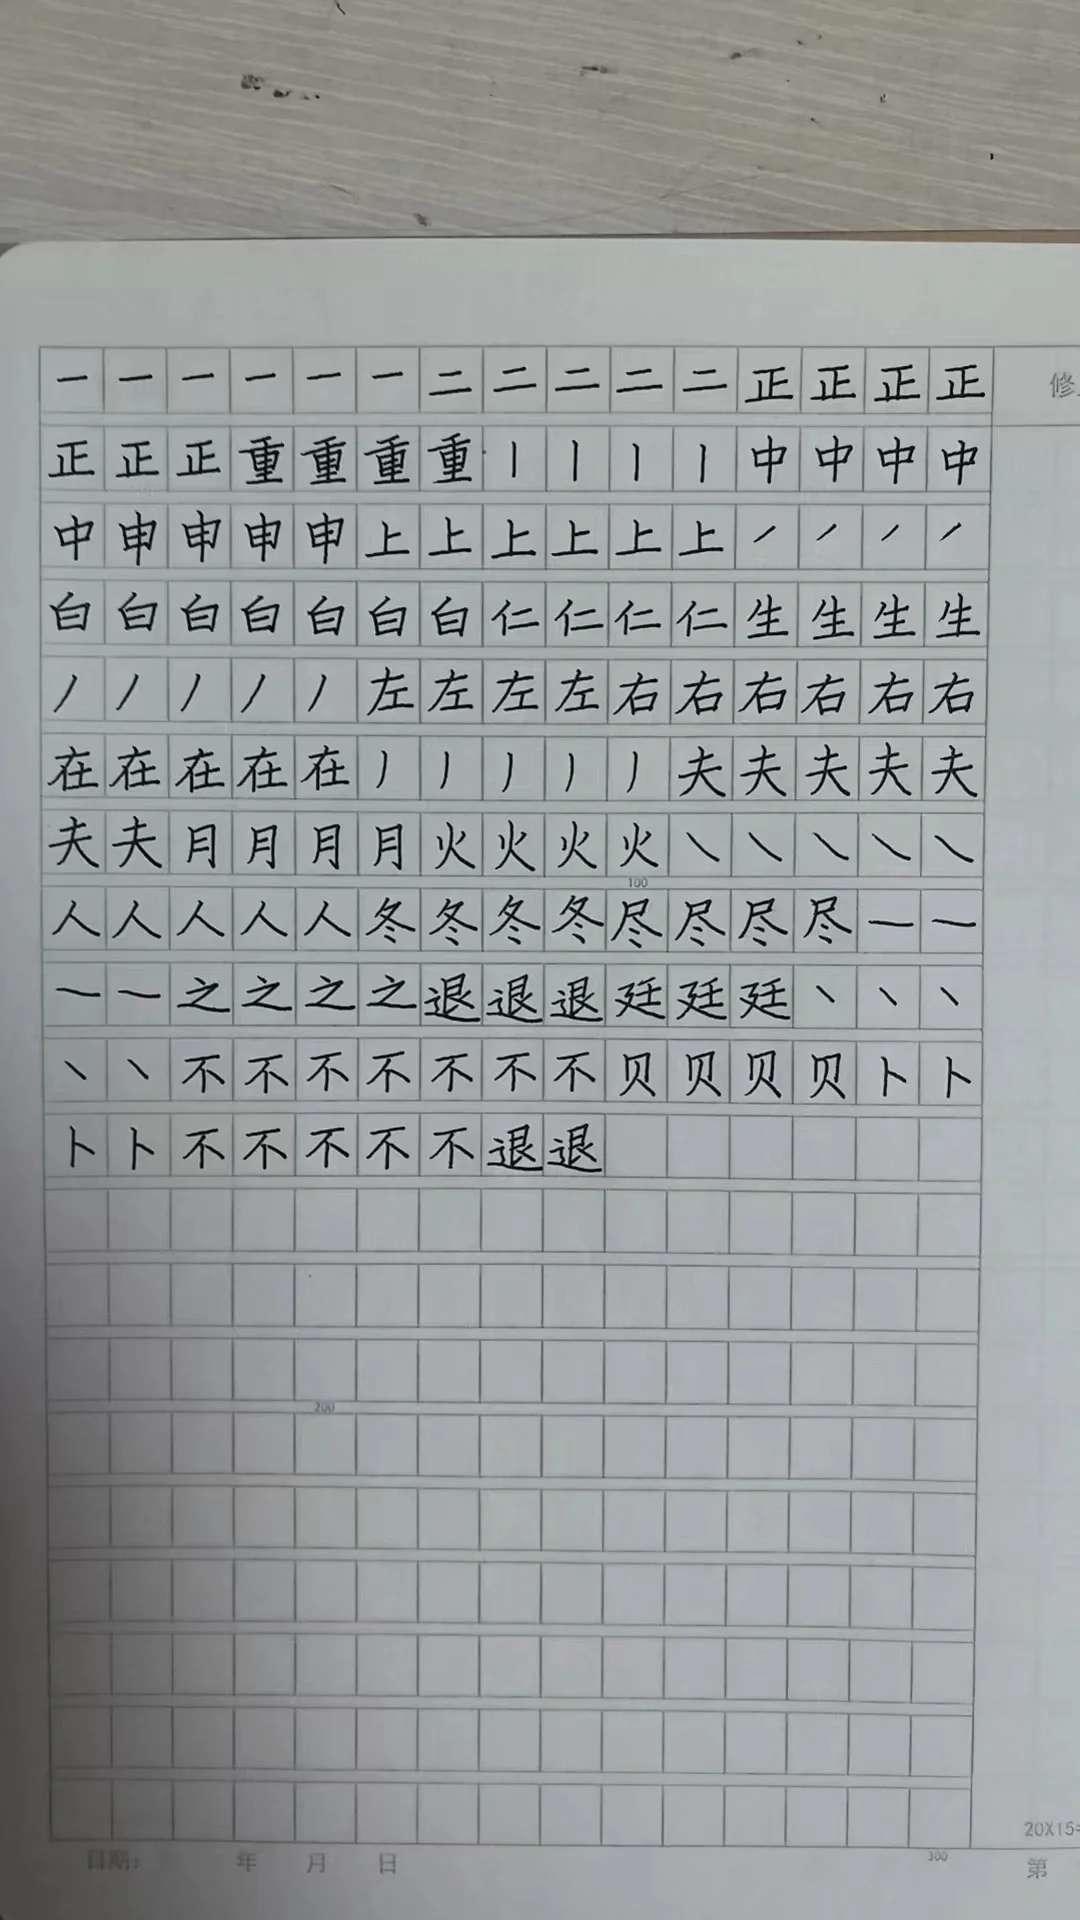 一一一一一一二二二二二正正正正 修
正正正重重重重丨丨丨丨中中中中
中申申申申上上上上上上丿丿丿丿
白白白白白白白仁仁仁仁生生生生
丿丿丿丿丿左左左左右右右右右右
在在在在在丿丿丿丿丿夫夫夫夫夫
夫夫月月月月火火火火㇏㇏㇏㇏㇏
100
人人人人人冬冬冬冬尽尽尽尽㇏㇏
㇏㇏之之之之退退退廷廷廷丶丶丶
丶丶不不不不不不不贝贝贝贝卜卜
卜卜不不不不不退退
200
20X15=
日期: 年 月 日 300 第